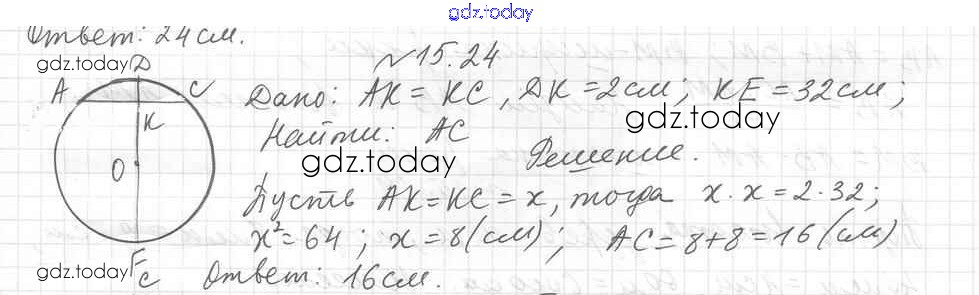 gdz.today
Ответ: 24 см.
№15.24
gdz.today
D
A
C
K
O
Дано: AK = KC, DK = 2 см; KE = 32 см;
Найти: AC
gdz.today
gdz.today
Решение.
Пусть AK = KC = x, тогда x · x = 2 · 32;
x² = 64; x = 8 (см); AC = 8 + 8 = 16 (см)
gdz.today
Ответ: 16 см.
gdz.today